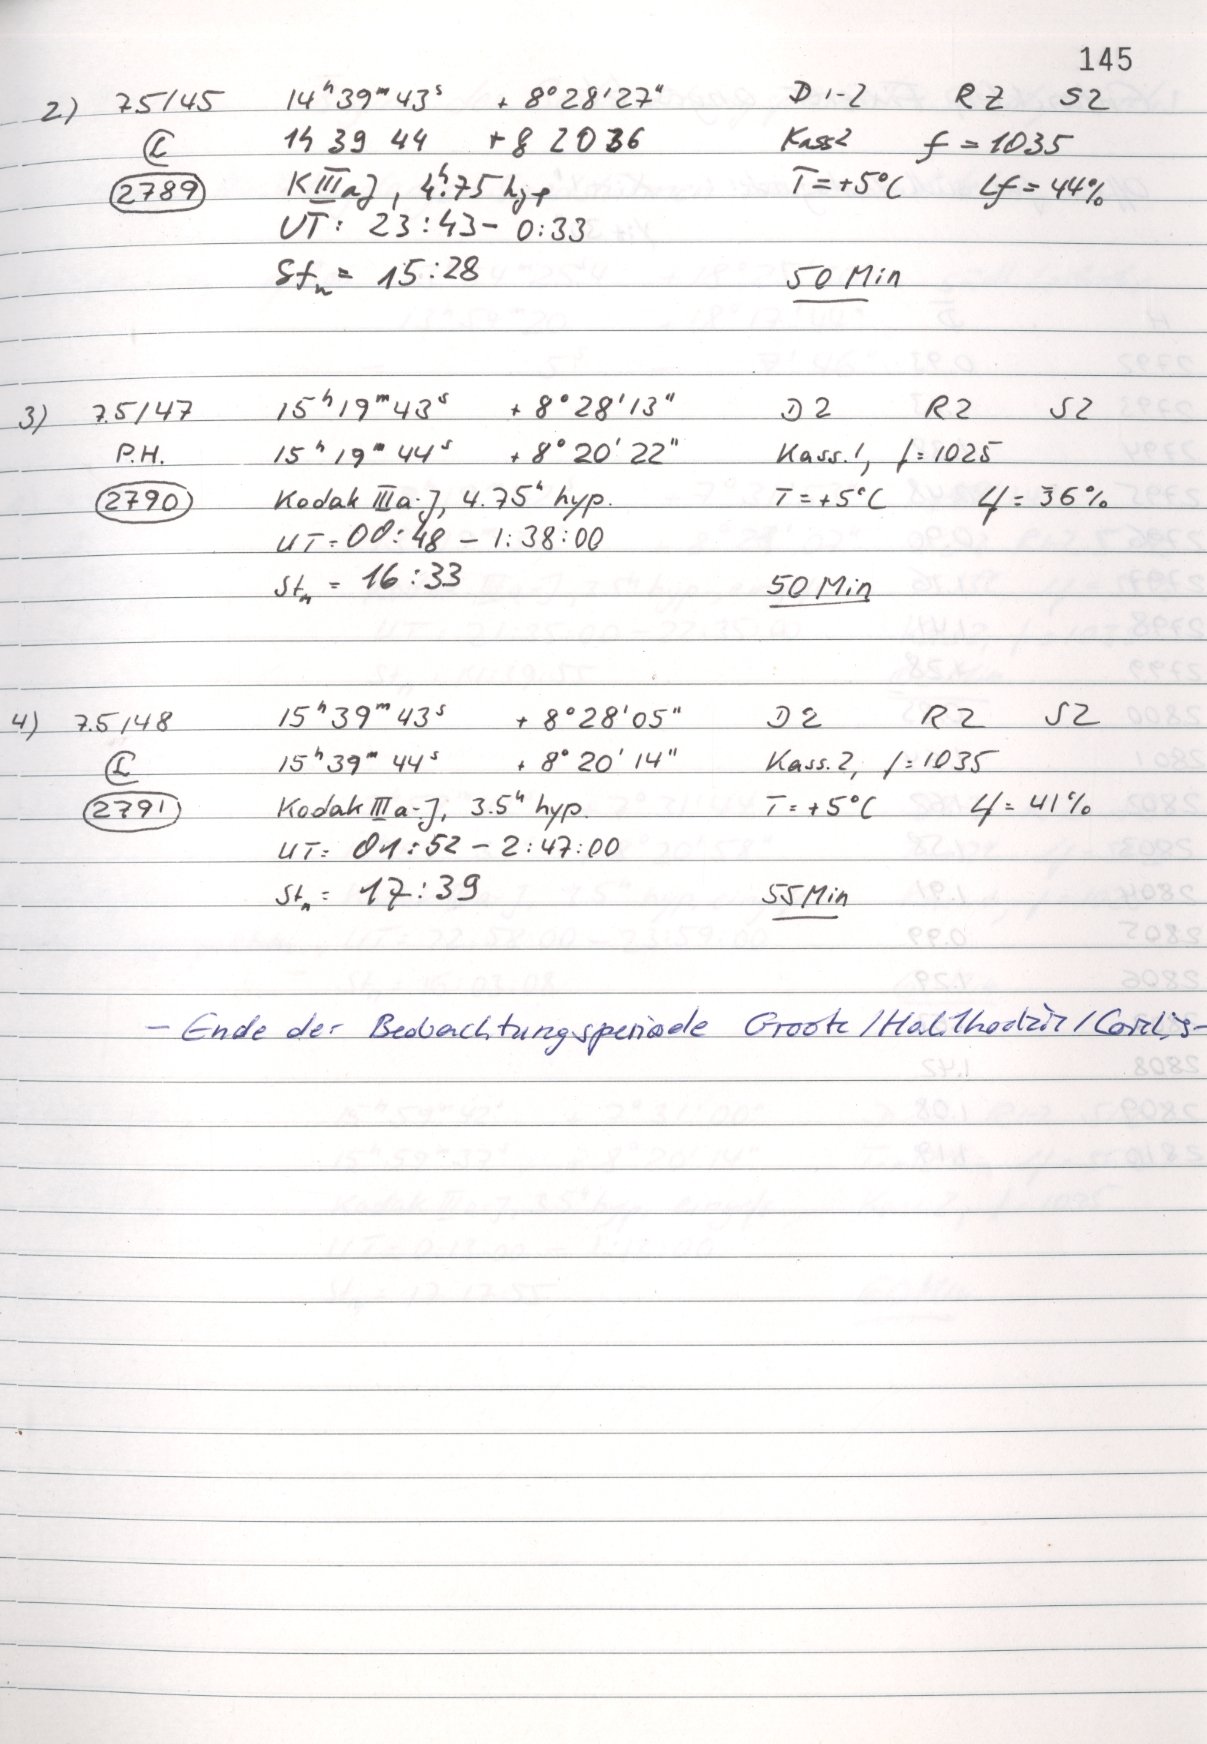 145
2) 75/45 14ʰ39ᵐ43ˢ + 8°28'27" D 1-2 R2 S2
C 14 39 44 + 8 20 36 Kass2 f = 1035
2789 K IIIaJ, 4ʰ.75 hyp T=+5°C Lf=44%
UT: 23:43 - 0:33
Stₙ = 15:28 50 Min
3) 75/47 15ʰ19ᵐ43ˢ + 8°28'13" D2 R2 S2
P.H. 15ʰ19ᵐ44ˢ + 8°20'22" Kass.1, f=1025
2790 Kodak IIIa-J, 4.75ʰ hyp. T=+5°C Lf=36%
UT=00:48 - 1:38:00
Stₙ = 16:33 50 Min
4) 75/48 15ʰ39ᵐ43ˢ + 8°28'05" D2 R2 S2
C 15ʰ39ᵐ44ˢ + 8°20'14" Kass.2, f=1035
2791 Kodak IIIa-J, 3.5ʰ hyp. T=+5°C Lf=41%
UT= 01:52 - 2:47:00
Stₙ = 17:39 55 Min
- Ende der Beobachtungsperiode Groote/